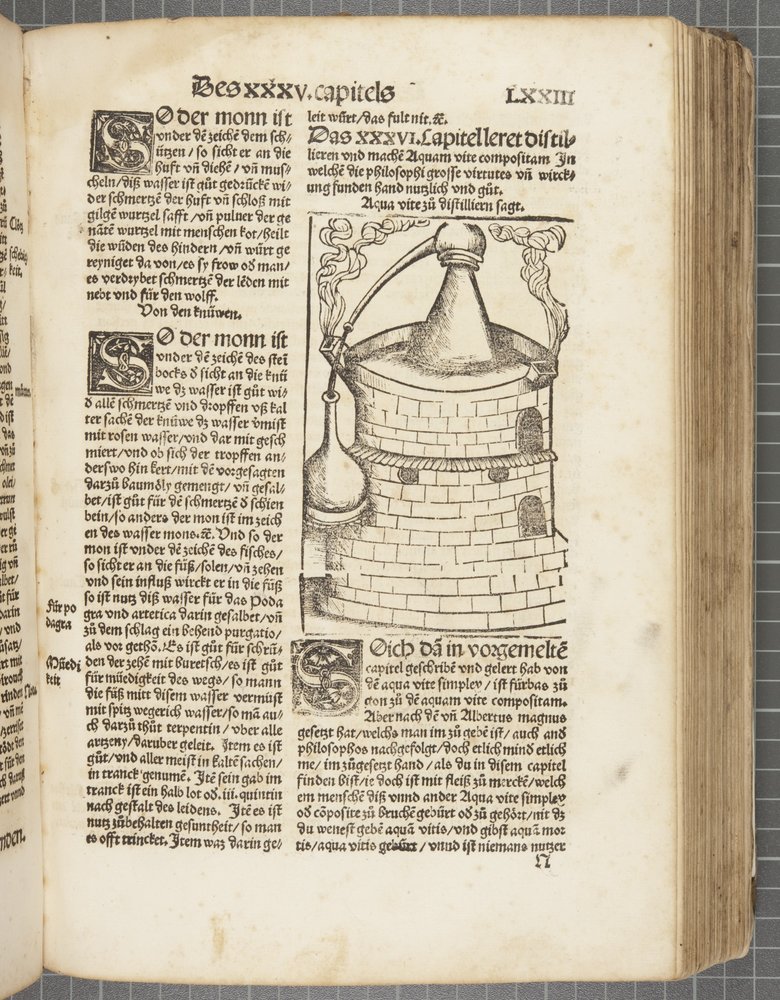 Des XXXV. capitels
LXXIII
SO der monn ist
vnder dē zeichē dem sch⸗
ützen / so sicht er an die
huft vn̄ diehē / vn̄ mus⸗
cheln / diß wasser ist gůt gedrückē wi⸗
der schmertzē der huft vn̄ schloß mit
gilgē wurtzel safft / vn̄ puluer der ge
nātē wurtzel mit menschen kot / heilt
die wüden des hindern / vn̄ würt ge
reyniget da von / es sy frow od man /
es verdrybet schmertzē der lēden mit
nebt vnd für den wolff.
Von den knüwen.
SO der monn ist
vnder dē zeichē des stei
bocks d sicht an die knü
we dz wasser ist gůt wi⸗
d allē schmertzē vnd dropffen vß kal
ter sachē der knüwe dz wasser vmist
mit rosen wasser / vnd dar mit gesch
miert / vnd ob sich der tropffen an⸗
derswo hin kert / mit dē vorgesagten
darzů baumöly gemengt / vn̄ gesal⸗
bet / ist gůt für dē schmertzē d schien
bein / so anders der mon ist im zeich
en des wasser mons. ꝛc. Vnd so der
mon ist vnder dē zeichē des fisches /
so sicht er an die füß / solen / vn̄ zehen
vnd sein influß wirckt er in die füß
so ist nutz diß wasser für das Poda
gra vnd artetica darin gesalbet / vn̄
zů dem schlag ein behend purgatio /
als vor gethō. Es ist gůt für schrū⸗
den der zehē mit buretsch / es ist gůt
für müedigkeit des wegs / so mann
die füß mitt disem wasser vermüst
mit spitz wegerich wasser / so mā au⸗
ch darzů thůt terpentin / vber alle
artzeny / daruber geleit. Item es ist
gůt / vnd aller meist in kaltē sachen /
in tranck genumē. Itē sein gab im
tranck ist ein halb lot od. iii. quintin
nach gestalt des leidens. Itē es ist
nutz zůbehalten gesuntheit / so man
es offt trincket. Item waz darin ge⸗
Für po
dagra
Müedi
keit
leit würt / das fult nit. ꝛc.
Das XXXVI. Capitel leret distil⸗
lieren vnd machē Aquam vite compositam In
welchē die philosophi grosse virtutes vn̄ wirck⸗
ung funden hand nutzlich vnd gůt.
Aqua vite zů distilliern sagt.
SOich dā in vorgemeltē
capitel geschribē vnd gelert hab von
dē aqua vite simplex / ist fürbas zů
gon zů dē aquam vite compositam.
Aber nach dē vn̄ Albertus magnus
gesetzt hat / welchs man im zů gebē ist / auch and
philosophos nachgefolgt / doch etlich mind etlich
me / im zůgesetzt hand / als du in disem capitel
finden bist / ie doch ist mit fleiß zů merckē / welch
em menschē diß vnnd ander Aqua vite simplex
od cōposite zů bruchē gebürt od zů gehört / nit dz
du wenest gebē aquā vitis / vnd gibst aquā mor
tis / aqua vitis gebürt / vnnd ist niemans nutzer
N